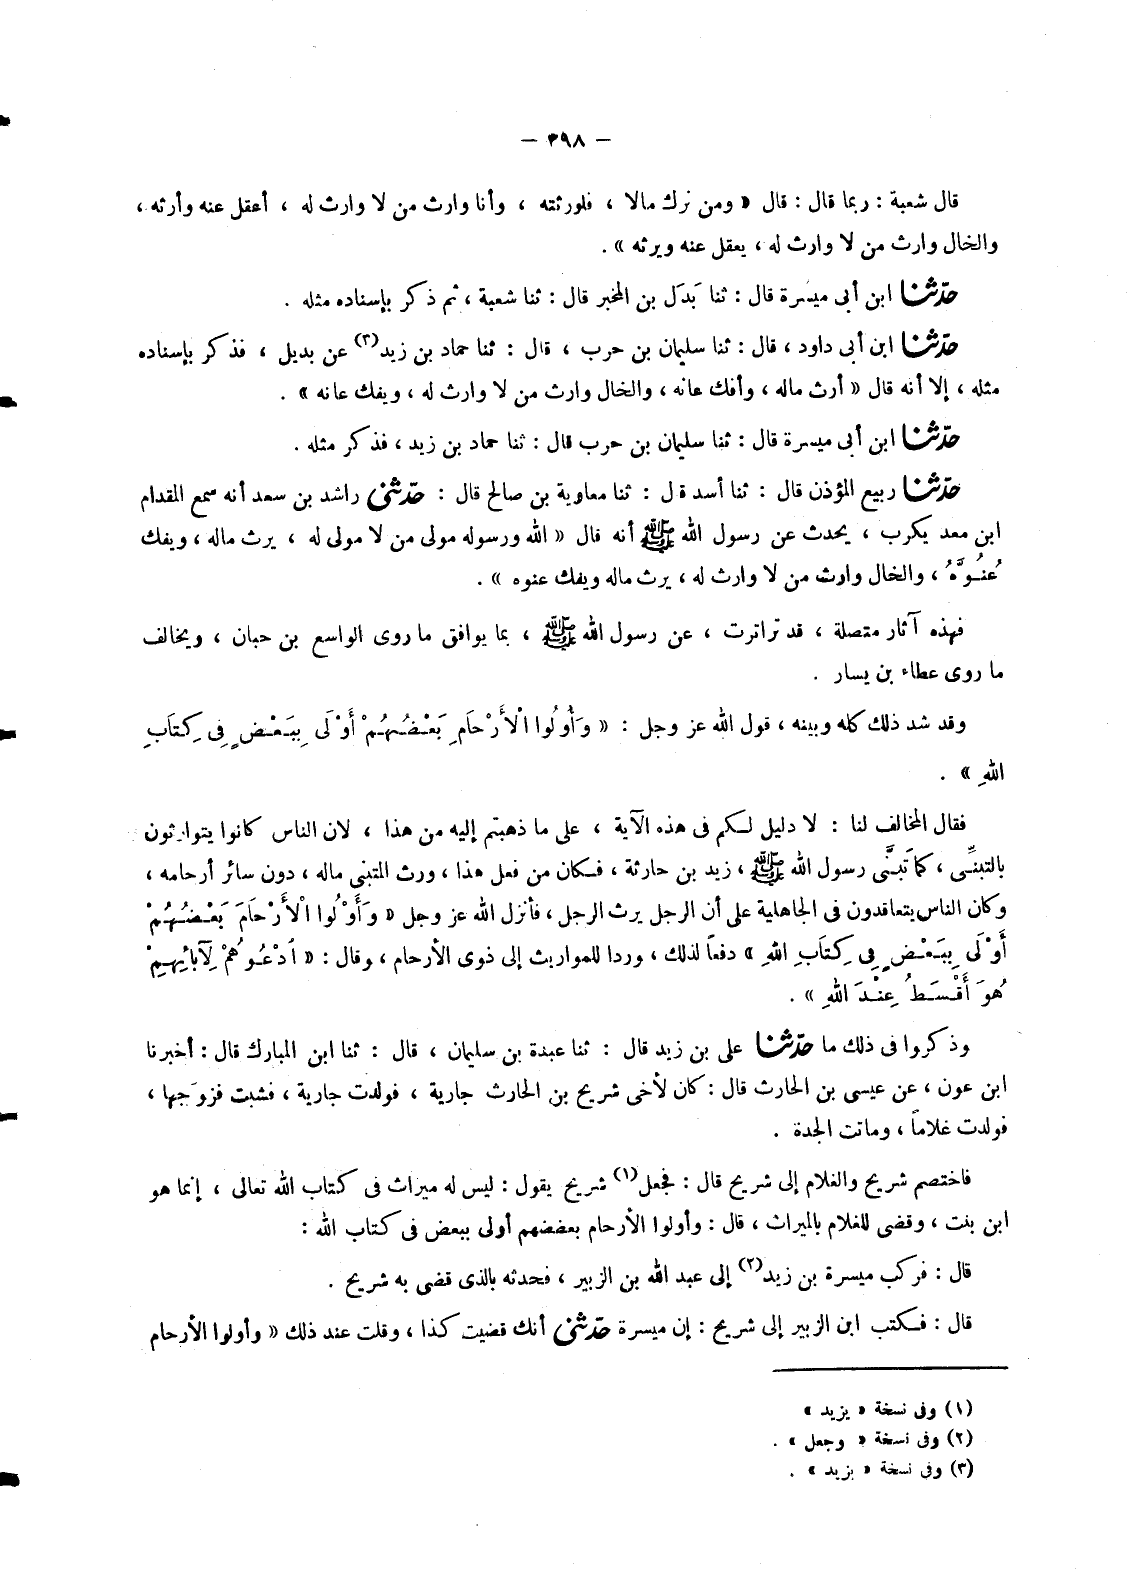 – ٣٩٨ –
قال شعبة : ربما قال : قال « ومن ترك مالا ، فلورثته ، وأنا وارث من لا وارث له ، أعقل عنه وأرثه ،
والخال وارث من لا وارث له ، يعقل عنه ويرثه » .
حدّثنا ابن أبى ميسرة قال : ثنا بَدَل بن المخبر قال : ثنا شعبة ، ثم ذكر بإسناده مثله .
حدّثنا ابن أبى داود ، قال : ثنا سليمان بن حرب ، قال : ثنا حماد بن زيد(٣) عن بديل ، فذكر بإسناده
مثله ، إلا أنه قال « أرث ماله ، وأفك عانه ، والخال وارث من لا وارث له ، ويفك عانه » .
حدّثنا ابن أبى ميسرة قال : ثنا سليمان بن حرب قال : ثنا حماد بن زيد ، فذكر مثله .
حدّثنا ربيع المؤذن قال : ثنا أسد قال : ثنا معاوية بن صالح قال : حدّثنى راشد بن سعد أنه سمع المقدام
ابن معد يكرب ، يحدث عن رسول الله ﷺ أنه قال « الله ورسوله مولى من لا مولى له ، يرث ماله ، ويفك
عُنُوَّهُ ، والخال وارث من لا وارث له ، يرث ماله ويفك عنوه » .
فهذه آثار متصلة ، قد تراترت ، عن رسول الله ﷺ ، بما يوافق ما روى الواسع بن حبان ، ويخالف
ما روى عطاء بن يسار .
وقد شد ذلك كله وبينه ، قول الله عز وجل : « وَأُولُوا الْأَرْحَامِ بَعْضُهُمْ أَوْلَى بِبَعْضٍ فِى كِتَابِ
اللهِ » .
فقال المخالف لنا : لا دليل لكم فى هذه الآية ، على ما ذهبتم إليه من هذا ، لان الناس كانوا يتوارثون
بالتبنِّى ، كما تَبنَّى رسول الله ﷺ ، زيد بن حارثة ، فكان من فعل هذا ، ورث المتبنى ماله ، دون سائر أرحامه ،
وكان الناس يتعاقدون فى الجاهلية على أن الرجل يرث الرجل ، فأنزل الله عز وجل « وَأُوْلُوا الْأَرْحَامَ بَعْضُهُمْ
أَوْلَى بِبَعْضٍ فِى كِتَابِ اللهِ » دفعاً لذلك ، وردا للمواريث إلى ذوى الأرحام ، وقال : « اُدْعُوهُمْ لِآبائِهِمْ
هُوَ أَقْسَطُ عِنْدَ اللهِ » .
وذكروا فى ذلك ما حدّثنا على بن زيد قال : ثنا عبدة بن سليمان ، قال : ثنا ابن المبارك قال : أخبرنا
ابن عون ، عن عيسى بن الحارث قال : كان لأخى شريح بن الحارث جارية ، فولدت جارية ، فشبت فزوجها ،
فولدت غلاماً ، وماتت الجدة .
فاختصم شريح والغلام إلى شريح قال : فجعل(١) شريح يقول : ليس له ميراث فى كتاب الله تعالى ، إنما هو
ابن بنت ، وقضى للغلام بالميراث ، قال : وأولوا الأرحام بعضضهم أولى ببعض فى كتاب الله :
قال : فركب ميسرة بن زيد(٢) إلى عبد الله بن الزبير ، فحدثه بالذى قضى به شريح .
قال : فكتب ابن الزبير إلى شريح : إن ميسرة حدّثنى أنك قضيت كذا ، وقلت عند ذلك « وأولوا الأرحام
(١) وفى نسخة « يزيد »
(٢) وفى نسخة « وجعل » .
(٣) وفى نسخة « يزيد » .